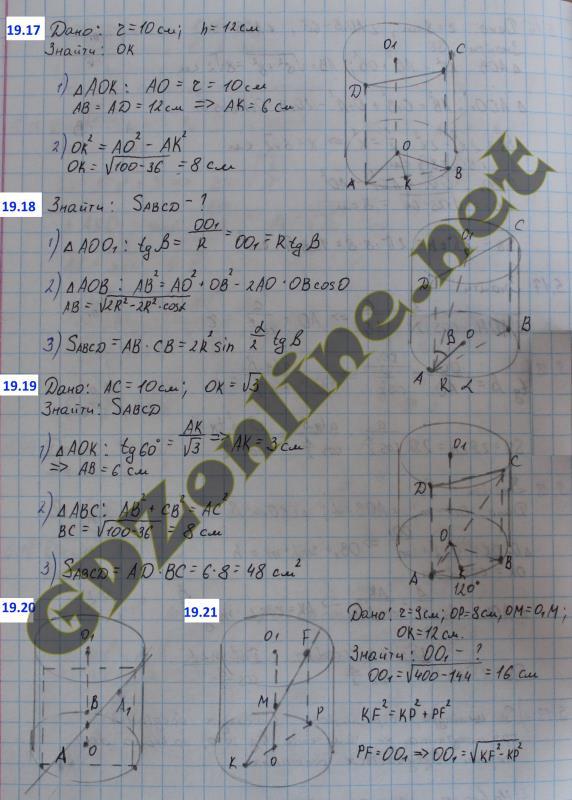 19.17 Дано: r = 10 см; h = 12 см
Знайти: OK
1) △AOK: AO = r = 10 см
AB = AD = 12 см => AK = 6 см
2) OK² = AO² - AK²
OK = √100-36 = 8 см
O1
C
D
O
A
K
B
19.18 Знайти: SABCD - ?
1) △AOO1: tgβ = OO1/R = OO1 = R tgβ
2) △AOB: AB² = AO² + OB² - 2AO · OB cosO
AB = √2R² - 2R² · cosα
3) SABCD = AB · CB = 2R² sin α/2 tgβ
O1
C
D
B
β
O
A
R
α
19.19 Дано: AC = 10 см; OK = √3
Знайти: SABCD
1) △AOK: tg60° = AK/√3 => AK = 3 см
=> AB = 6 см
2) △ABC: AB² + CB² = AC²
BC = √100-36 = 8 см
3) SABCD = AD · BC = 6 · 8 = 48 см²
O1
C
D
O
A
K
B
120°
19.20
O1
B
A1
A
O
19.21
O1
F
M
P
K
O
Дано: r = 9 см; OP = 9 см, OM = O1M;
OK = 12 см.
Знайти: OO1 - ?
OO1 = √400-144 = 16 см
KF² = KP² + PF²
PF = OO1 => OO1 = √KF² - KP²
GDZonline.net